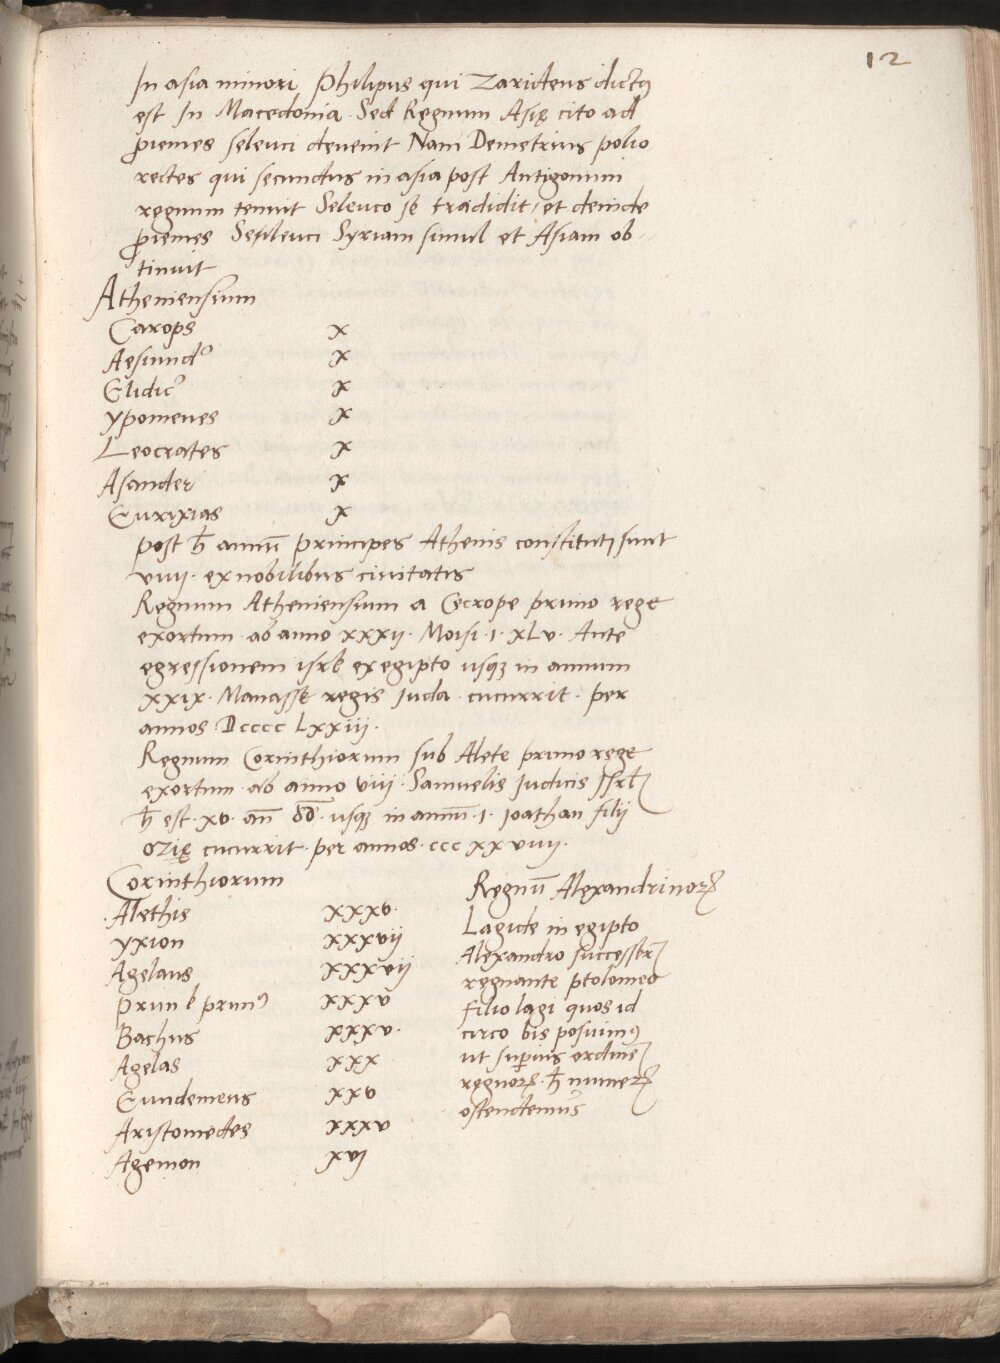 12
In asia minori Philipus qui Zarideus dictꝰ
est In Macedonia. Sed Regnum Asię cito ad
ꝓienies seleuci devenit Nam Demetrius polio
rectes qui secundus in asia post Antigonum
regnum tenuit Seleuco se tradidit, et deinde
ꝓienies Seuleuci Syriam simul et Asiam ob
tinuit
Atheniensium
Carops x
Aesiundꝰ x
Elidicꝰ x
Ypomenes x
Leocrates x
Asander x
Eurixias x
post h̄ annū principes Athenis constituti sunt
viiij. ex nobilibus civitatis
Regnum Atheniensium a Cecrope primo rege
exortum ab anno xxxij. Moisi .i. xLv. Ante
egressionem isrl̄ ex egipto usqꝫ in annum
xxix. Manasse regis Juda cucurrit. per
annos Dcccc Lxxiij.
Regnum Corinthiorum sub Alete primo rege
exortum ab anno viij. Samuelis Judicis Isrl̄
h̄ est .xv. an̄ .usqꝫ in annū .i. Joathan filij
ozię cucurrit. per annos. ccc xx viiij.
Corinthiorum
Alethis xxxv.
Yxion xxxvij
Agelaus xxxvij
Prum l̵ prumꝰ xxxv
Bachus xxxv.
Agelas xxx
Eundemeus xxv
Aristomedes xxxv
Agemon xvj
Regnū Alexandrinoꝝ
Lagide in egipto
Alexandro successor̄
regnante ptolomeo
filio lagi quos id
circo bis posuimꝰ
ut superius ordinē
regnoꝝ. h̄ numeꝝ
ostendemus